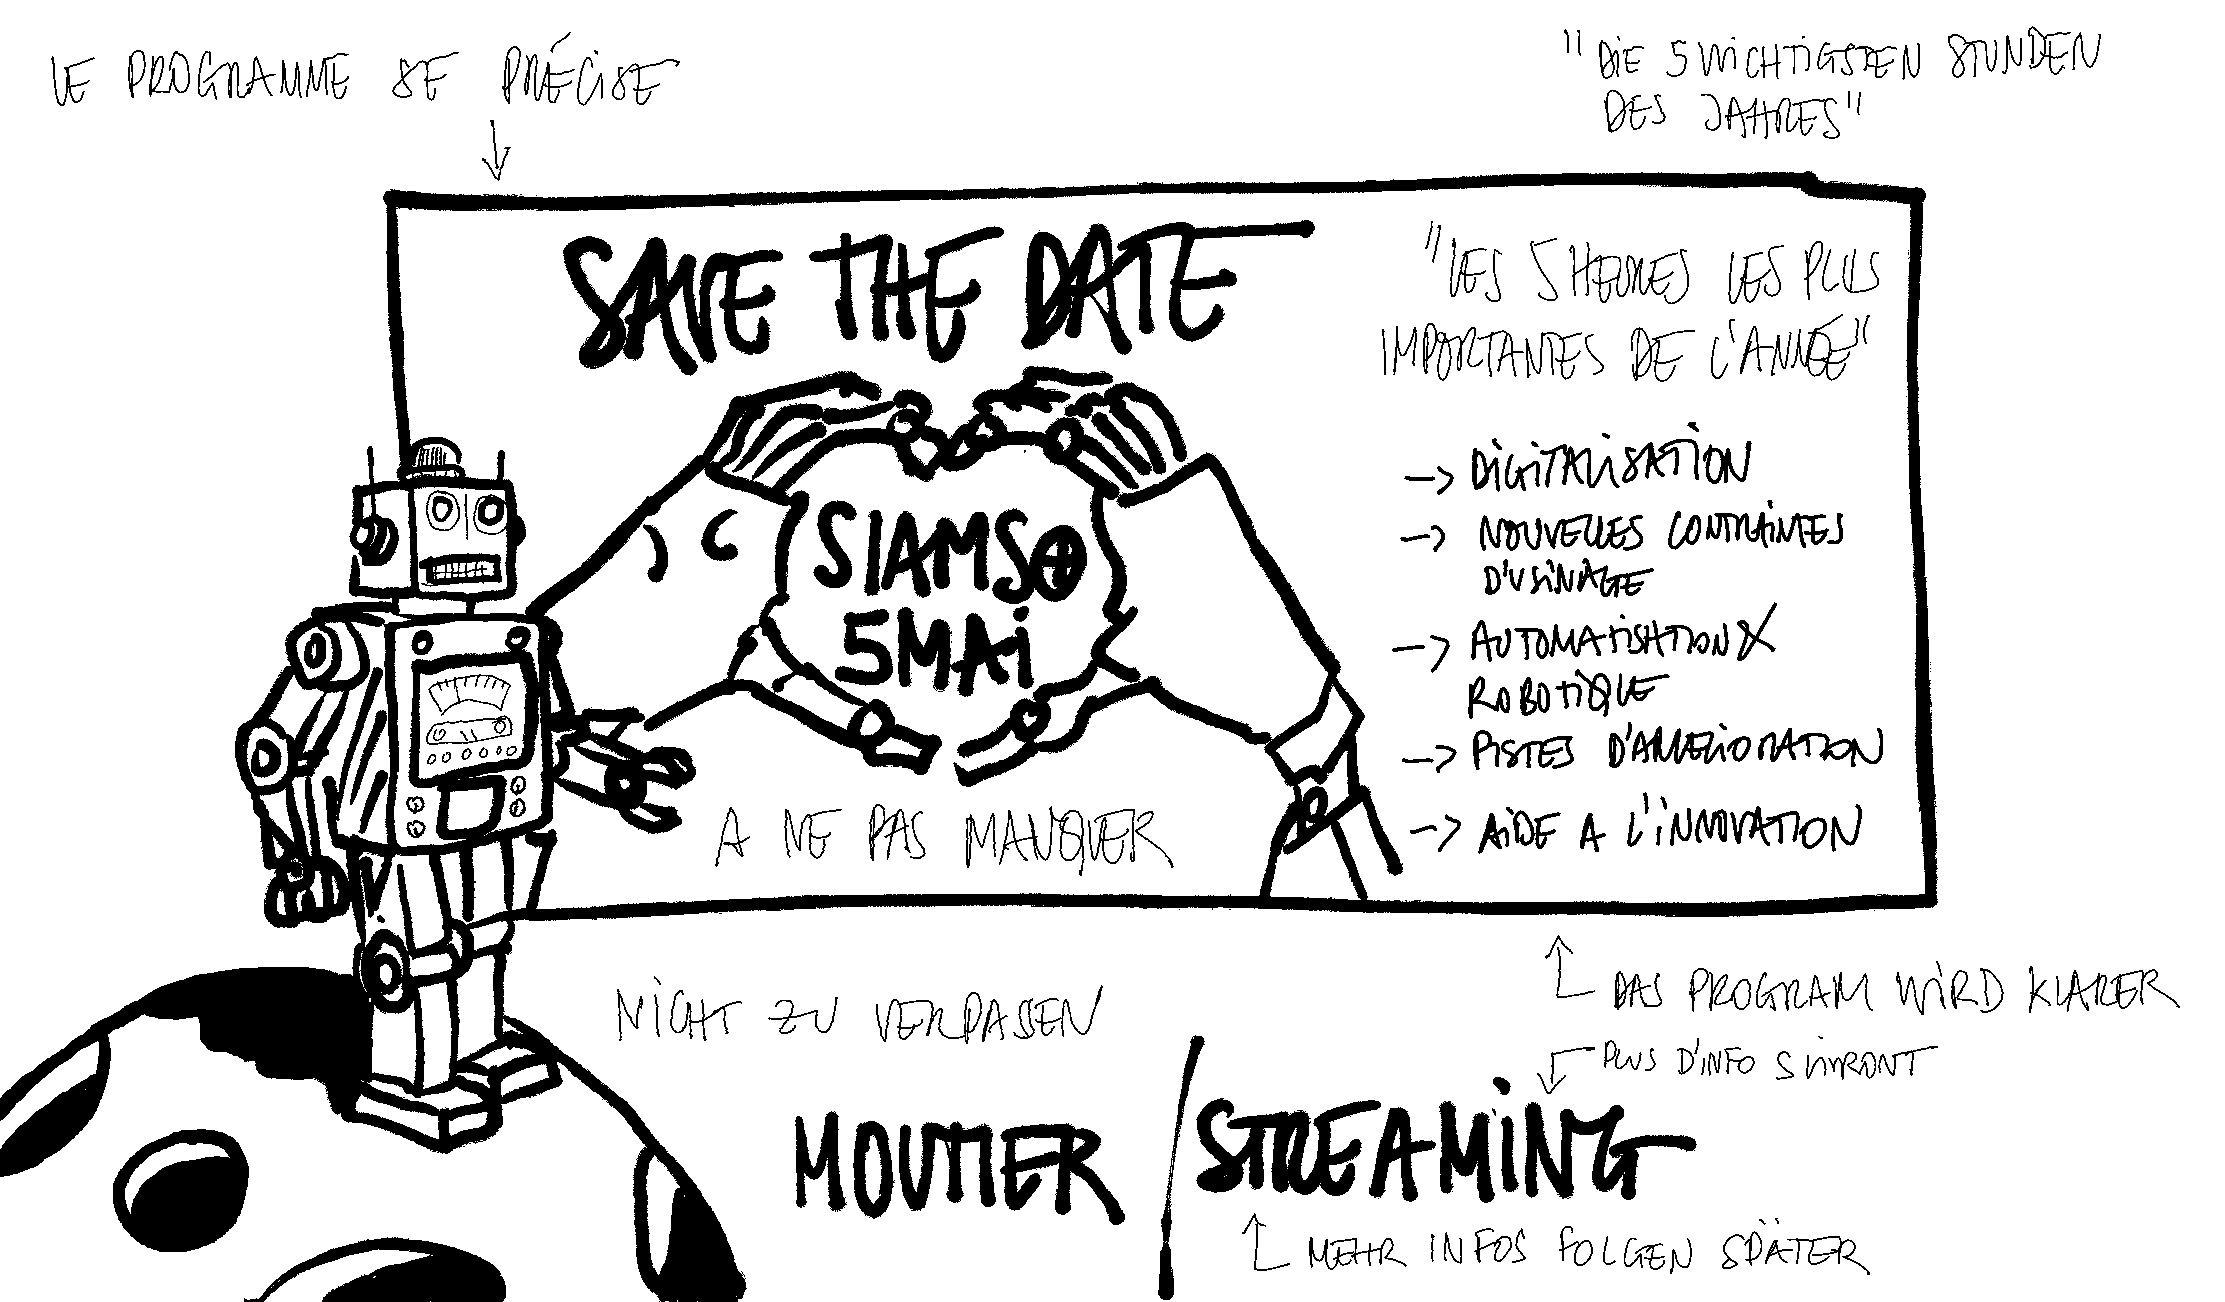 LE PROGRAMME SE PRÉCISE
"DIE 5 WICHTIGSTEN STUNDEN
DES JAHRES"
SAVE THE DATE
"LES 5 HEURES LES PLUS
IMPORTANTES DE L'ANNÉE"
SIAMS⊕
5 MAI
→ DIGITALISATION
→ NOUVELLES CONTRAINTES
D'USINAGE
→ AUTOMATISATION &
ROBOTIQUE
→ PISTES D'AMELIORATION
→ AIDE A L'INNOVATION
A NE PAS MANQUER
NICHT ZU VERPASSEN
DAS PROGRAM WIRD KLARER
PLUS D'INFO SUIVRONT
MOUTIER / STREAMING
MEHR INFOS FOLGEN SPÄTER